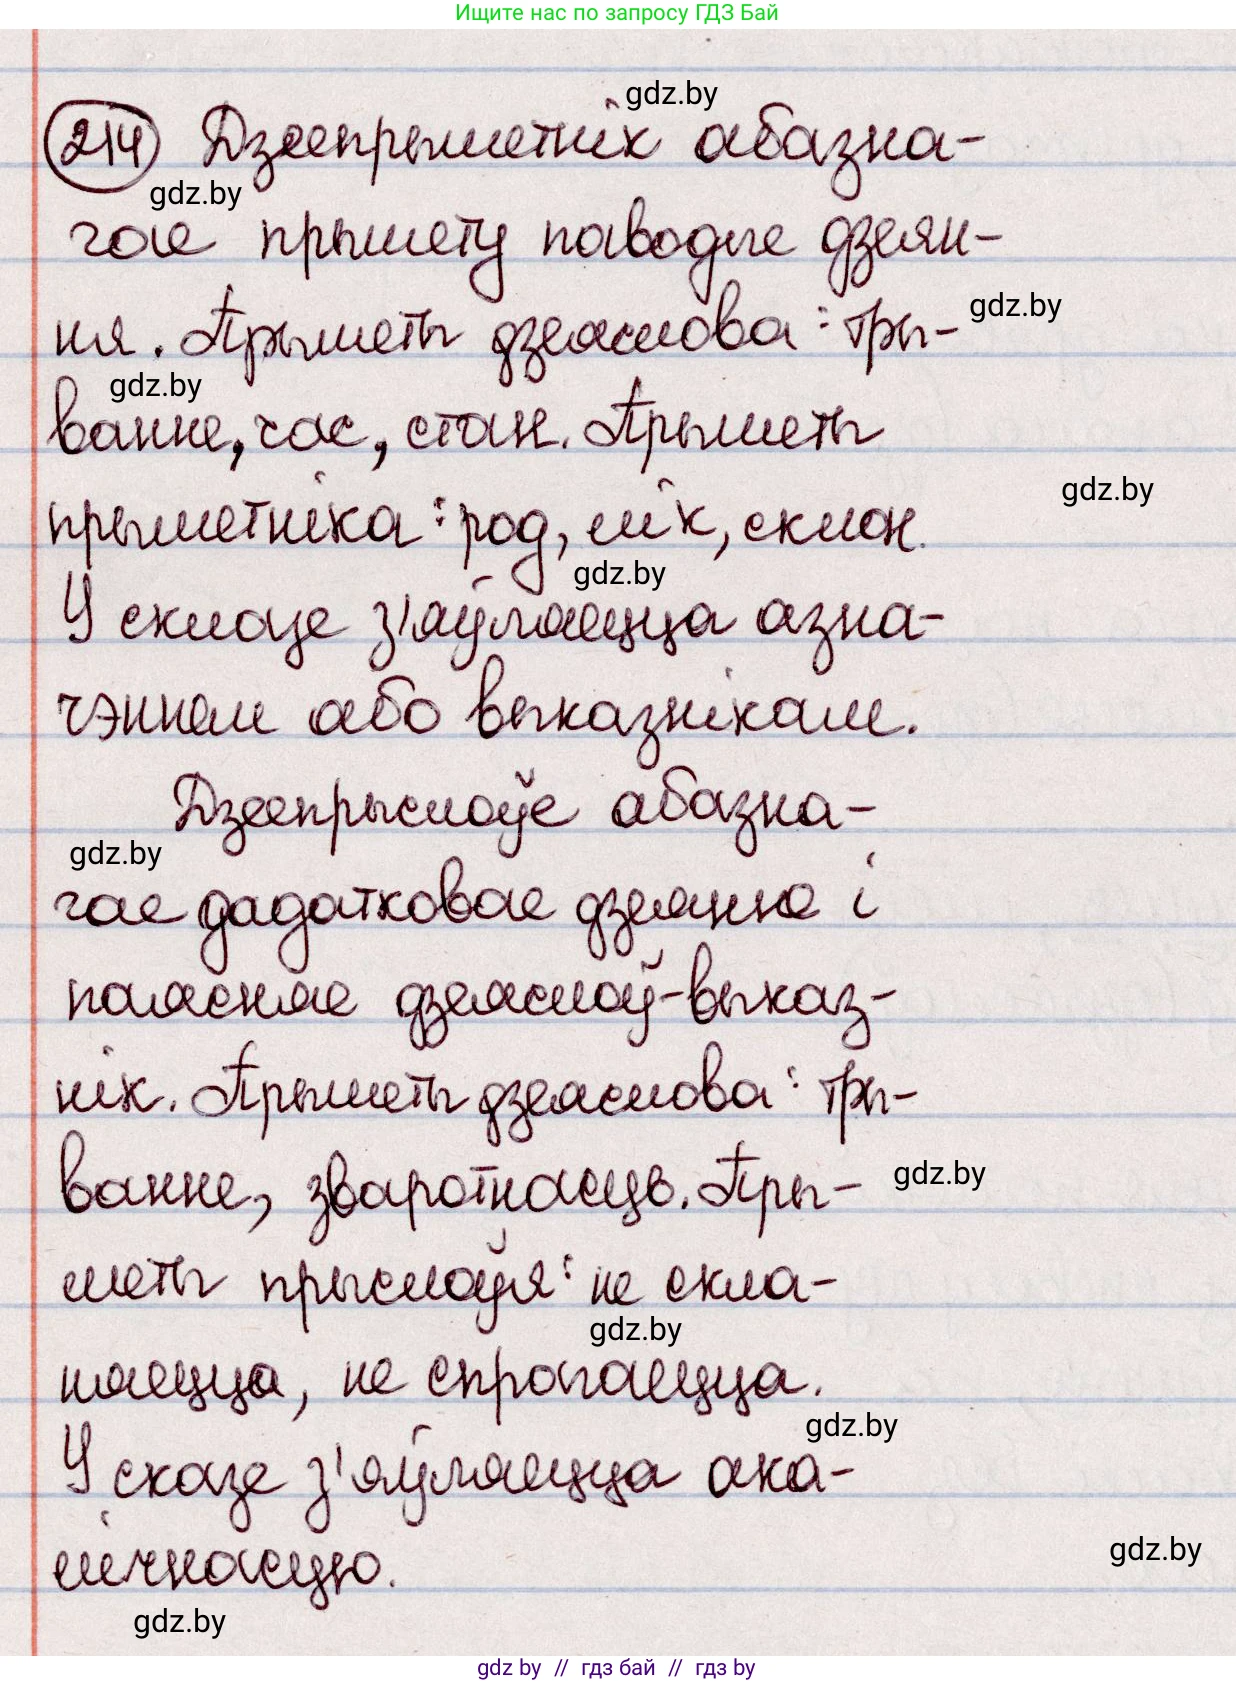 Ищите нас по запросу ГДЗ Бай
gdz.by
214 Дзеепрыметнік абазна-
gdz.by
чае прымету паводле дзеян-
ня. Прыметы дзеяслова: тры-
gdz.by
gdz.by
ванне, час, стан. Прыметы
gdz.by
прыметніка: род, лік, склон.
gdz.by
У склазе з'яўляецца азна-
чэннем або выказнікам.
Дзеепрыслоўе абазна-
gdz.by
чае дадатковае дзеянне і
паясняе дзеяслоў-выказ-
нік. Прыметы дзеяслова: тры-
gdz.by
ванне, зваротнасць. Пры-
меты прыслоўя: не скла-
gdz.by
няецца, не спрагаецца.
gdz.by
У сказе з'яўляецца ака-
gdz.by
лічнасцю.
gdz.by
gdz by // гдз бай // гдз by